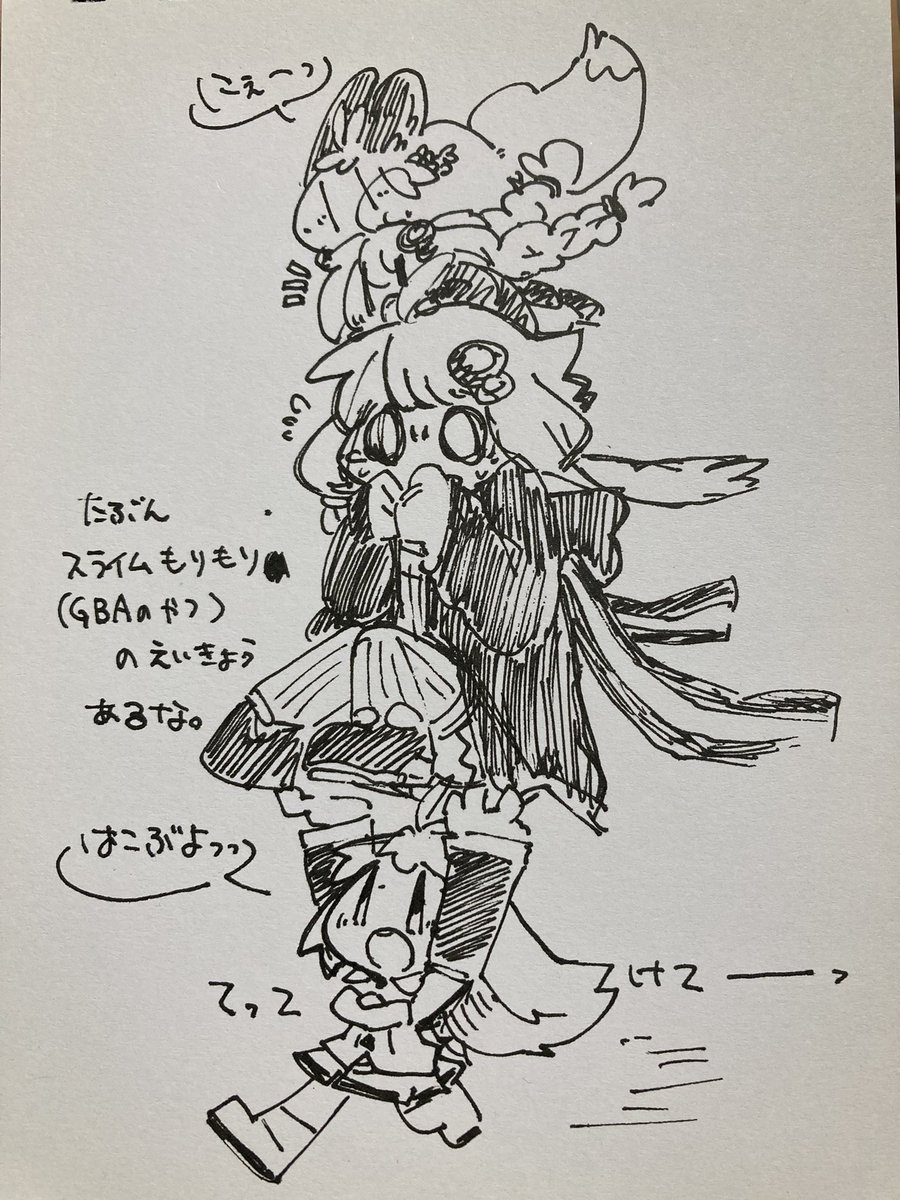 こえーっ
たぶん
スライムもりもり
(GBAのやつ)
のえいきょう
あるな。
はこぶよっっ
てって
けてーっ